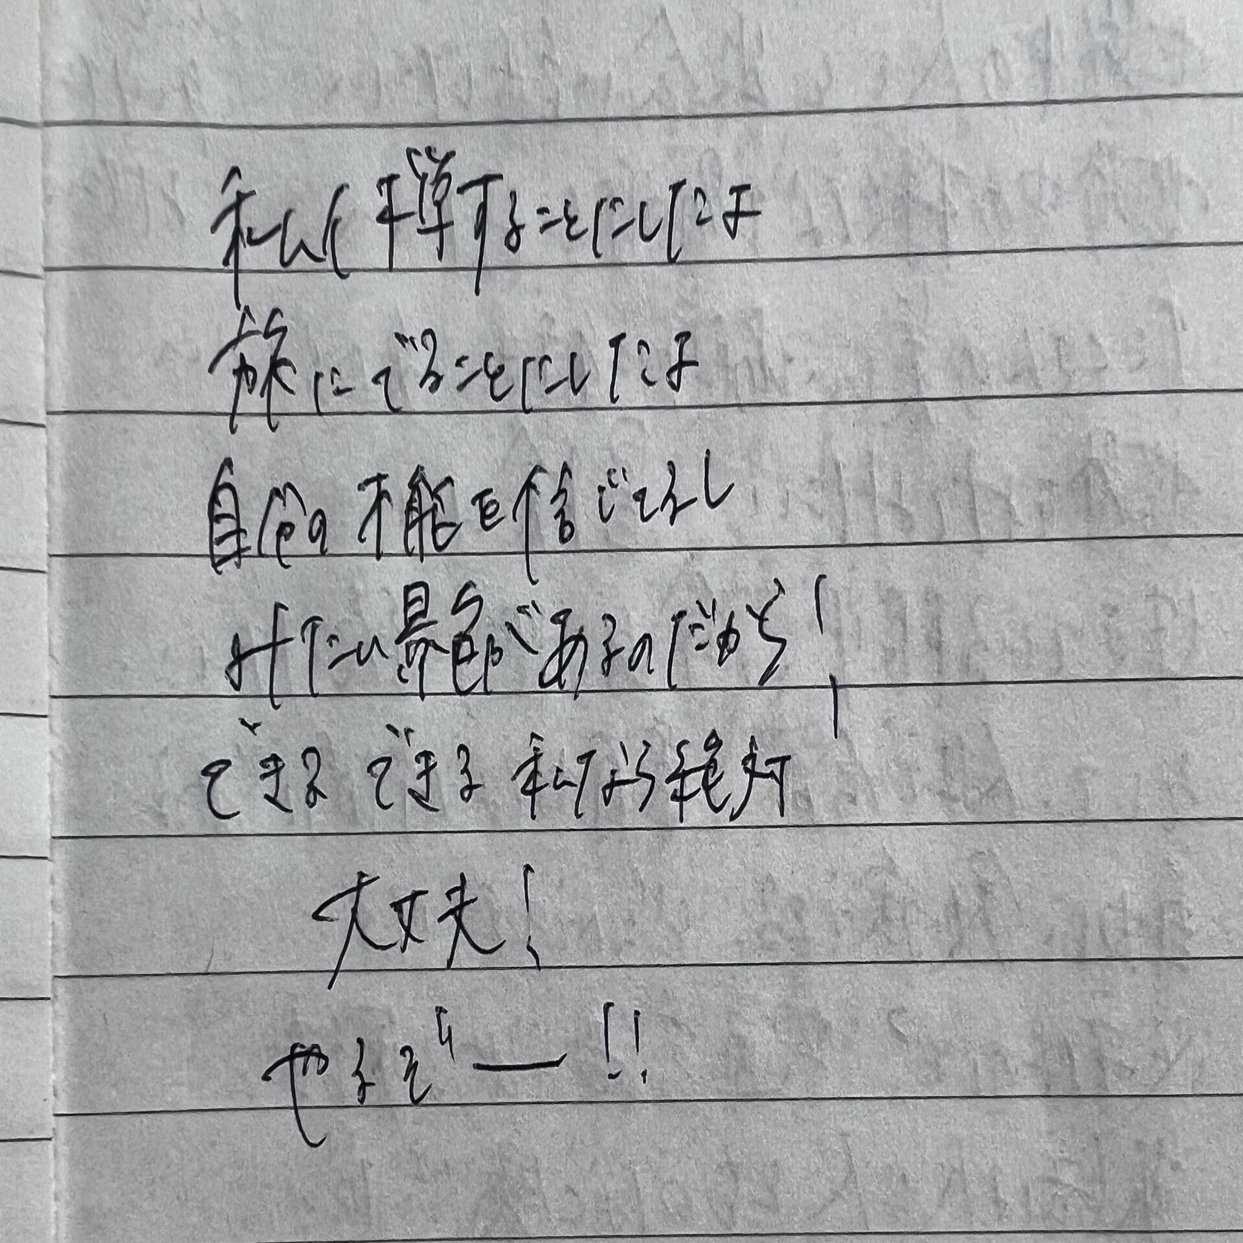 私は 挑戦することにしたよ
旅にでることにしたよ
自分の才能を信じてるし
みたい景色があるのだから!
できる できる 私なら絶対
大丈夫!
やるぞー!!